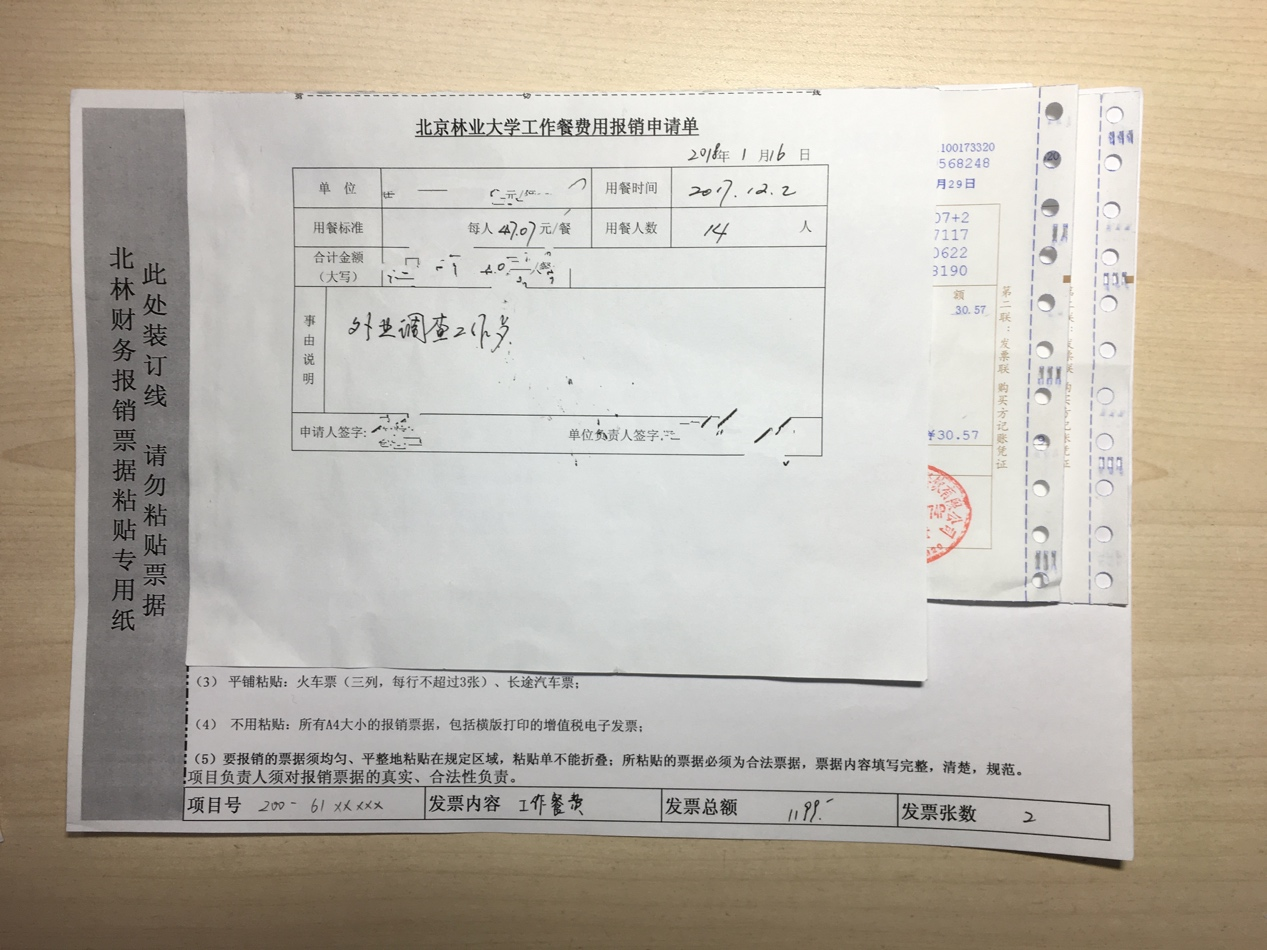 此处装订线 请勿粘贴票据
北林财务报销票据粘贴专用纸
北京林业大学工作餐费用报销申请单
2018年 1 月16 日
单 位
用餐时间 2017.12.2
用餐标准 每人 47.07 元/餐 用餐人数 14 人
合计金额
(大写)
事由说明
外业调查工作餐
申请人签字: 单位负责人签字:
100173320
568248
月29日
07+2
7117
0622
3190
额
30.57
¥30.57
第二联:发票联 购买方记账凭证
(3) 平铺粘贴:火车票(三列,每行不超过3张)、长途汽车票;
(4) 不用粘贴:所有A4大小的报销票据,包括横版打印的增值税电子发票;
(5)要报销的票据须均匀、平整地粘贴在规定区域,粘贴单不能折叠;所粘贴的票据必须为合法票据,票据内容填写完整,清楚,规范。
项目负责人须对报销票据的真实、合法性负责。
项目号 200- 61 xxxxx 发票内容 工作餐费 发票总额 1199.- 发票张数 2